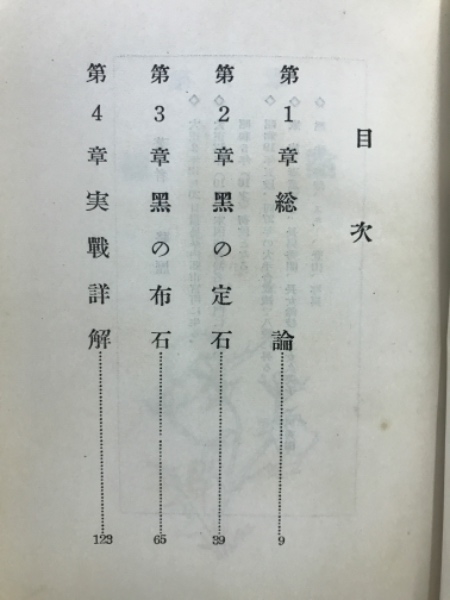 目次
第1章総論……9
第2章黑の定石……39
第3章黑の布石……65
第4章実戰詳解……123